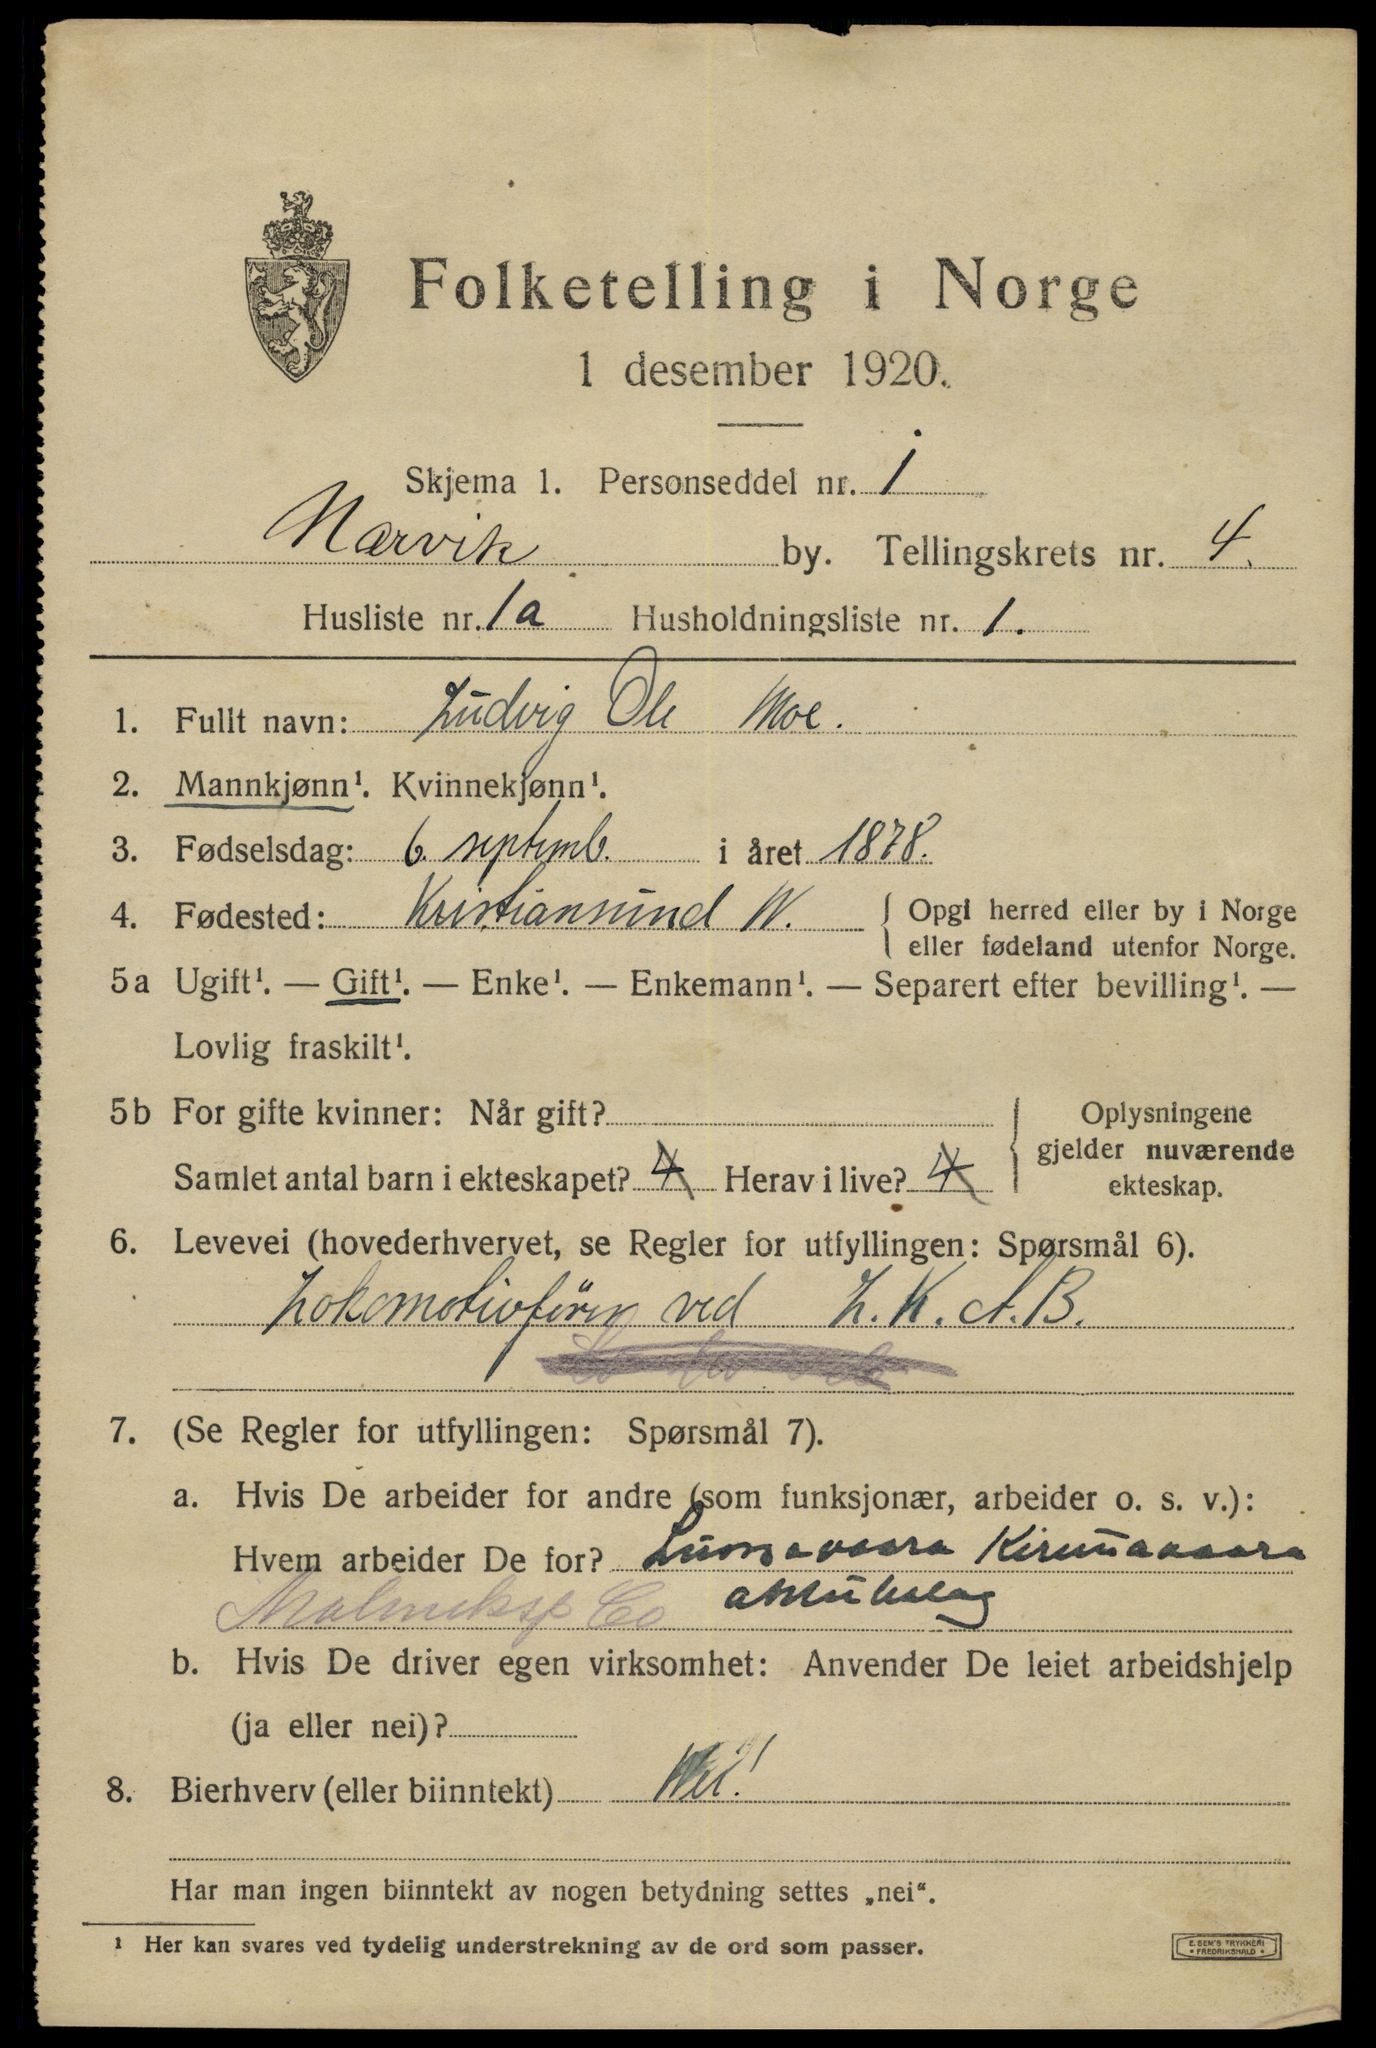 Folketelling i Norge
1 desember 1920.
Skjema 1. Personseddel nr. 1
Narvik by. Tellingskrets nr. 4.
Husliste nr. 1a Husholdningsliste nr. 1.
1. Fullt navn: Ludvig Ole Moe.
2. Mannkjønn¹. Kvinnekjønn¹.
3. Fødselsdag: 6. septemb. i året 1878.
4. Fødested: Kristiansund N. { Opgi herred eller by i Norge
eller fødeland utenfor Norge.
5a Ugift¹. — Gift¹. — Enke¹. — Enkemann¹. — Separert efter bevilling¹. —
Lovlig fraskilt¹.
5b For gifte kvinner: Når gift? Oplysningene
gjelder nuværende
Samlet antal barn i ekteskapet? 4 Herav i live? 4 ekteskap.
6. Levevei (hovederhvervet, se Regler for utfyllingen: Spørsmål 6).
Lokomotivfører ved L. K. A. B.
7. (Se Regler for utfyllingen: Spørsmål 7).
a. Hvis De arbeider for andre (som funksjonær, arbeider o. s. v.):
Hvem arbeider De for? Luossavaara Kirunavaara
Malmeksp Co aktiebolag
b. Hvis De driver egen virksomhet: Anvender De leiet arbeidshjelp
(ja eller nei)?
8. Bierhverv (eller biinntekt) Nei!
Har man ingen biinntekt av nogen betydning settes „nei“.
¹ Her kan svares ved tydelig understrekning av de ord som passer.
E. SEM'S TRYKKERI
• FREDRIKSHALD •